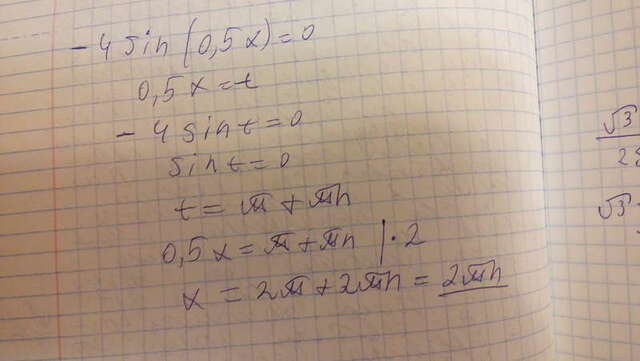 - 4 sin (0,5x) = 0
0,5x = t
- 4 sin t = 0
sin t = 0
t = π + πn
0,5x = π + πn | · 2
x = 2π + 2πn = 2πn
√3
2
√3